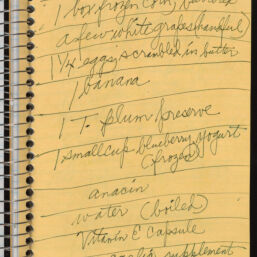 1 box frozen corn,
a few white grapes (handful)
1 1/4 eggs, scrambled in butter
1 banana
1 T. plum preserve
1 small cup blueberry yogurt
(frozen)
anacin
water (boiled)
Vitamin E capsule
supplement